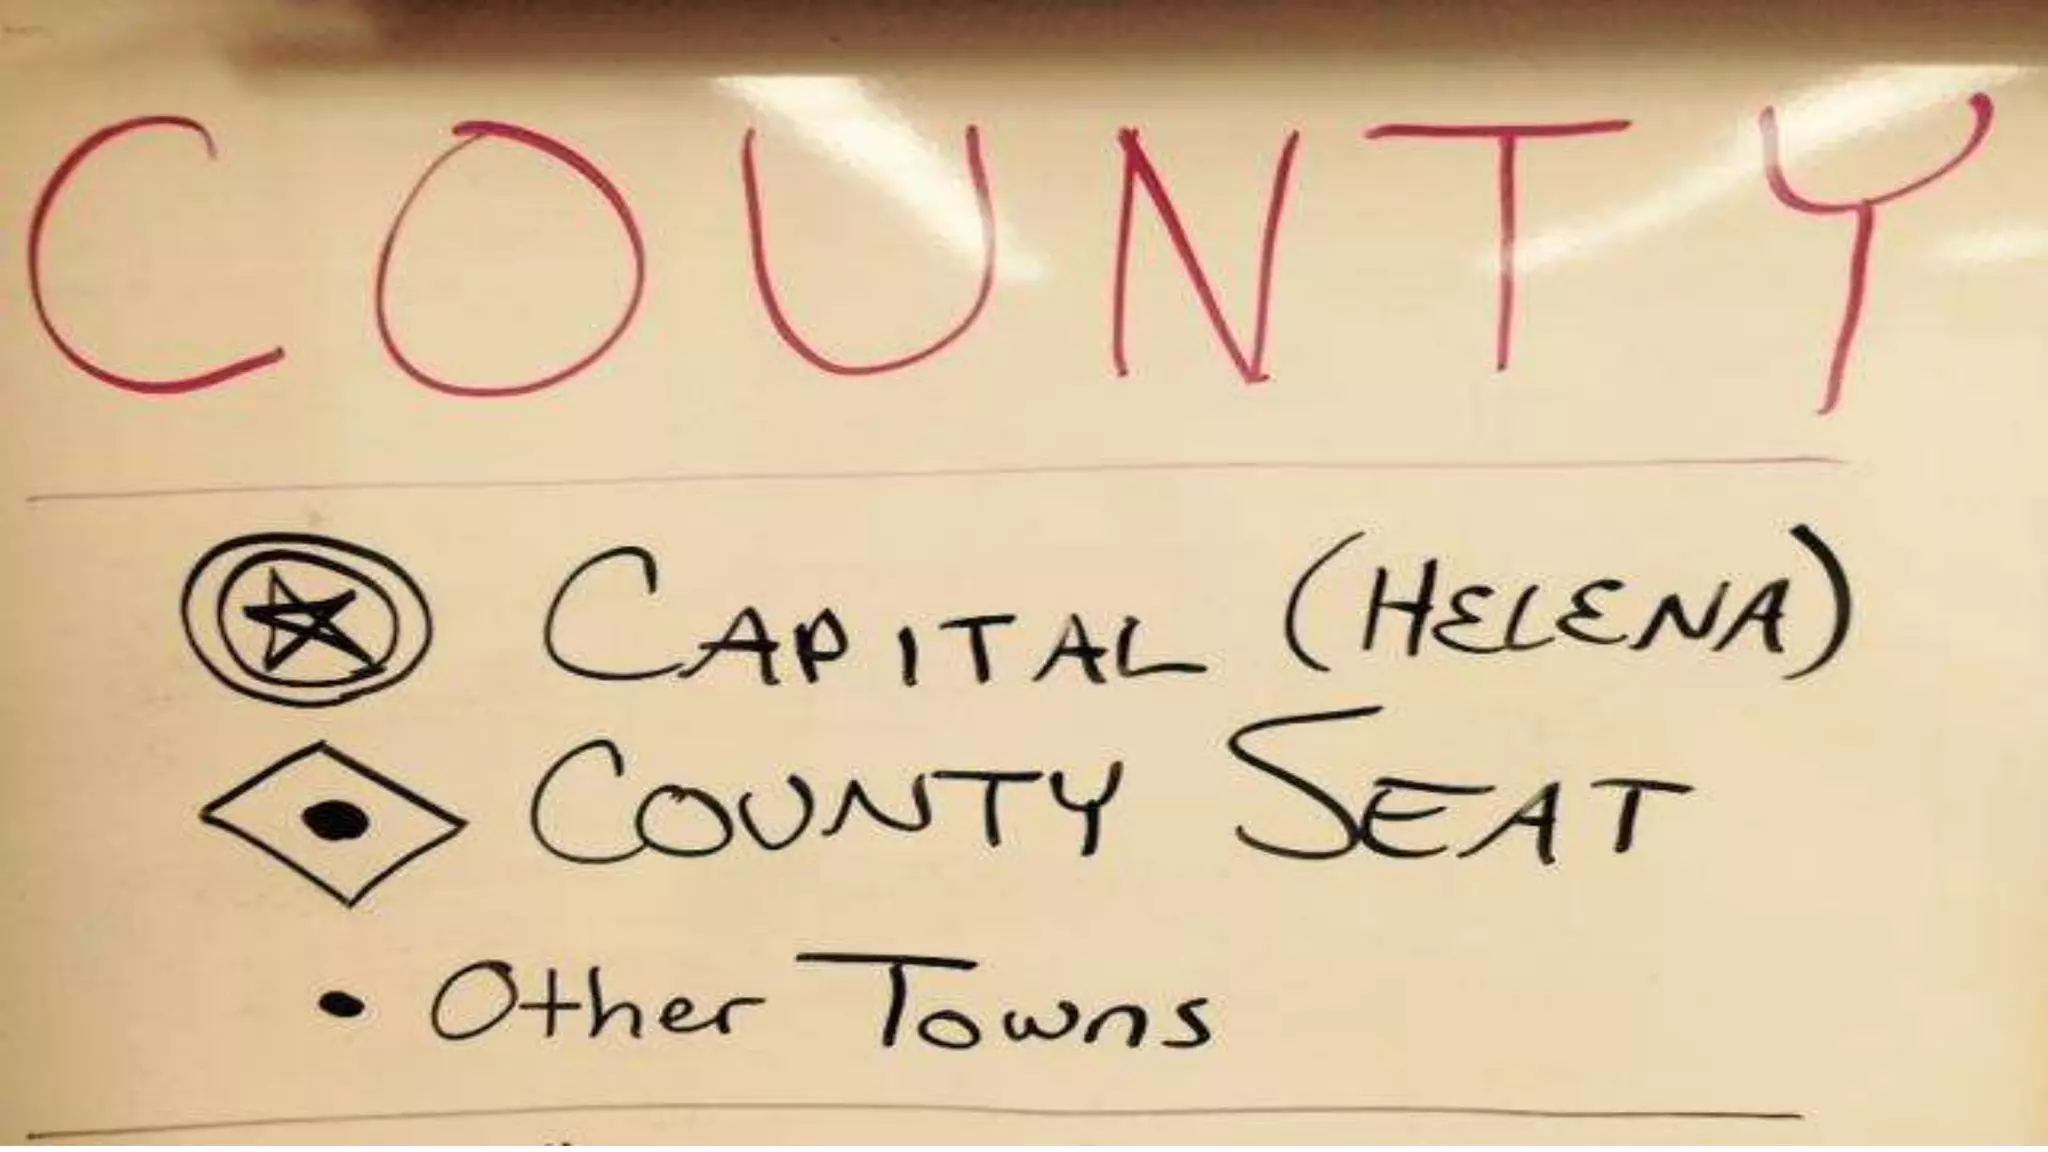 COUNTY
CAPITAL (HELENA)
COUNTY SEAT
• Other Towns